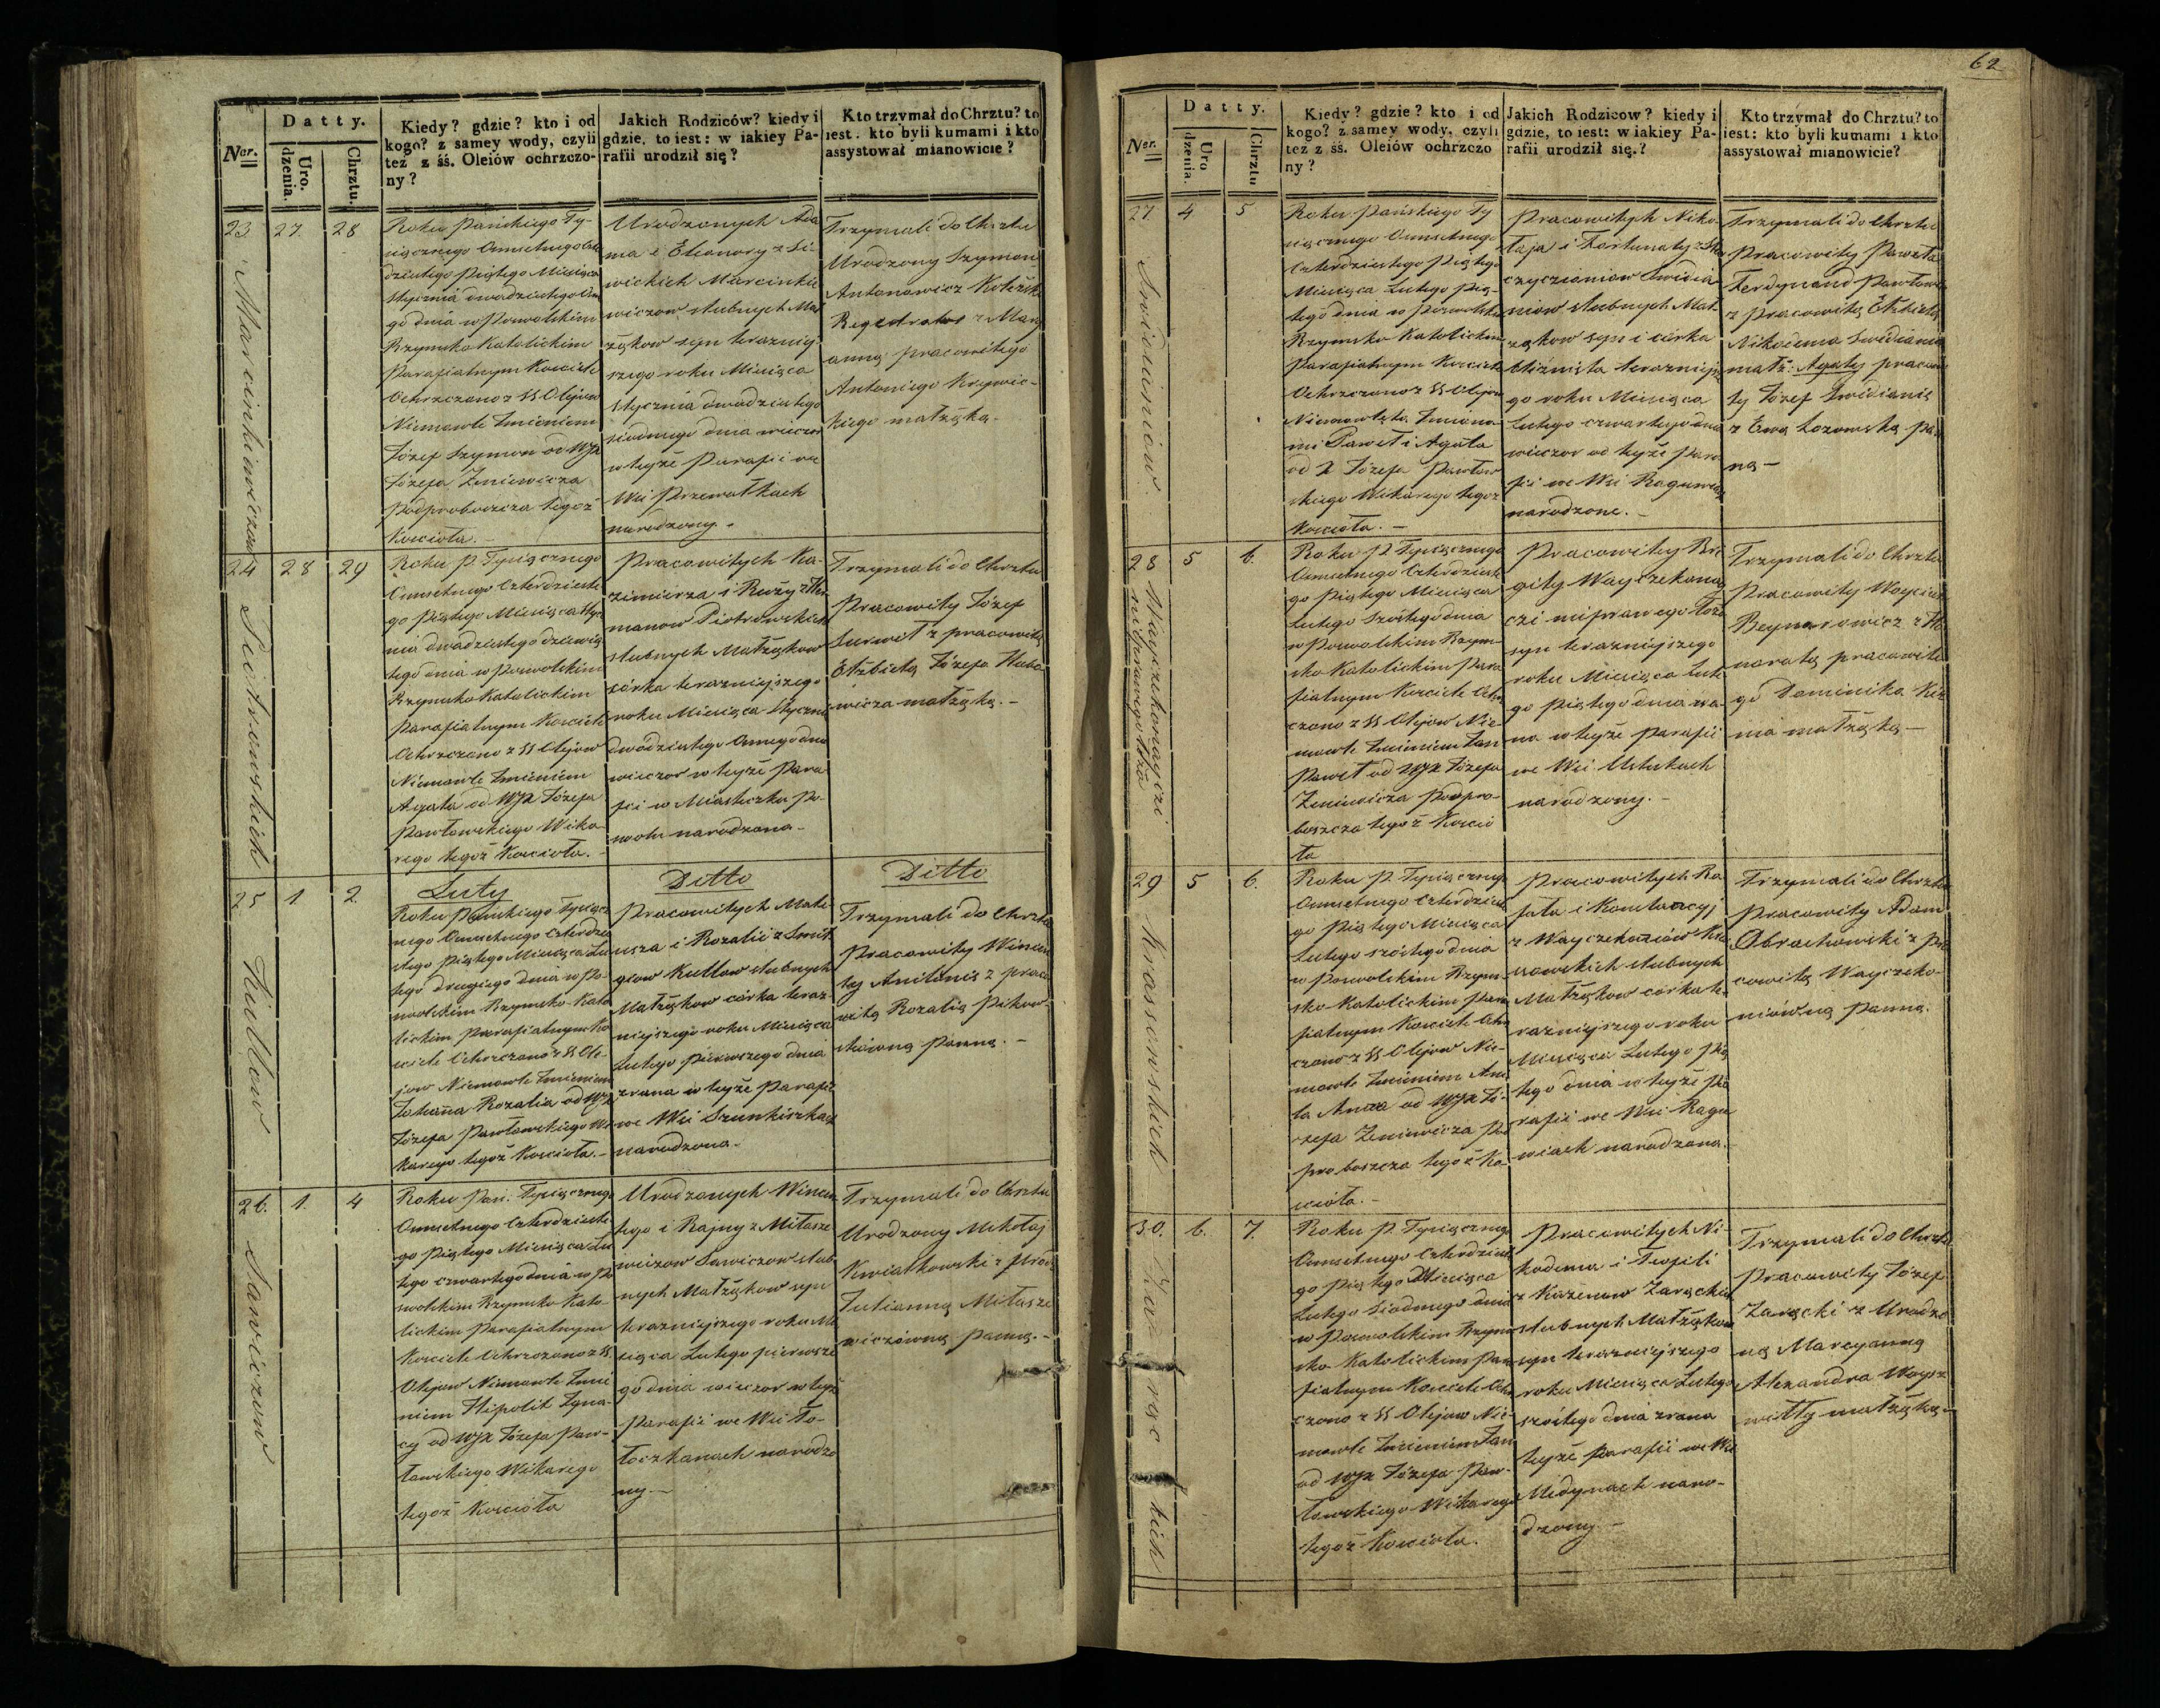 62
Datty.
Ner.
Uro.
dzenia.
Chrztu.
Kiedy? gdzie? kto i od
kogo? z samey wody, czyli
też z śś. Oleiów ochrzczo-
ny?
Jakich Rodziców? kiedy i
gdzie, to iest: w iakiey Pa-
rafii urodził się?
Kto trzymał do Chrztu? to
iest: kto byli kumami i kto
assystował mianowicie?
23. 27. 28
Marcinkiewiczow
Roku Pańskiego Ty-
siącznego Osmsetnego Czter
dziestego Piątego Miesiąca
Stycznia dwadziestego Osm
go dnia w Powolskim
Rzymsko Katolickim
Parafialnym Kosciele
Ochrzczono z SS Olejow
Niemowle Imieniem
Józef Szymon od WJX
Józefa Zeniewicza
Podproboszcza tegoż
Koscioła.
Urodzonych Ada
ma i Eleonory z Si-
wickich Marcinkie
wiczow slubnych Mał
żąkow syn terazniey
szego roku Miesiąca
Stycznia dwadziestego
siodmego dnia wieczor
w tejże Parafii we
Wsi Przewałkach
narodzony.
Trzymali do Chrztu
Urodzony Szymon
Antonowicz
z Mary
anną pracowitego
Antoniego Krzywic-
kiego małżąką.
24 28 29
Piotrowskich
Roku P. Tysiącznego
Osmsetnego Czterdzieste
go Piątego Miesiąca Stycz
nia dwadziestego dziewią
tego dnia w Powolskim
Rzymsko Katolickim
Parafialnym Kosciele
Ochrzczono z SS Olejow
Niemowle Imieniem
Agata od WJX Józefa
Pawłowskiego Wika-
rego tegoż Koscioła.
Pracowitych Ka-
zimierza i Ruży z
manow Piotrowskich
slubnych Małżąkow
córka terazniejszego
roku Miesiąca Stycznia
dwódziestego Osmego dnia
wieczor w tejże Para
fii w Miasteczku Po-
wolu narodzona.
Trzymali do Chrztu
Pracowity Józef
Surwił z pracowitą
Elżbietą Józefa
wicza małżąką.
25 1 2
Kullow
Luty
Roku Pańskiego Tysiącz
nego Osmsetnego Czterdzie
stego Piątego Miesiąca Lu
tego drugiego dnia w Po-
wolskim Rzymsko-Kato
lickim Parafialnym Ko
sciele Ochrzczono z SS Ole-
jow Niemowle Imieniem
Johanna Rozalia od WJX
Józefa Pawłowskiego Wi
karego tegoż Koscioła.
Ditto
Pracowitych Mate-
usza i Rozalii z Smił
giow Kullow slubnych
Małżąkow córka teraz
niejszego roku Miesiąca
Lutego pierwszego dnia
zrana w tejże Parafii
we Wsi Szunkiszkach
narodzona.
Ditto
Trzymali do Chrztu
Pracowity Wincen
ty Anitonis z praco
witą Rozalią Pikow-
stówną Panną.
26. 1. 4
Sawiczow
Roku Pań. Tysiącznego
Osmsetnego Czterdzieste
go Piątego Miesiąca Lu
tego czwartego dnia w Po
wolskim Rzymsko Kato-
lickim Parafialnym
Kosciele Ochrzczono z SS
Olejow Niemowle Imie
niem Hipolit Igna-
cy od WJX Józefa Paw-
łowskiego Wikarego
tegoż Koscioła
Urodzonych Wincen
tego i Rajny z Miłasze
wiczow Sawiczow slub
nych Małżąkow syn
terazniejszego roku Mie
siąca Lutego pierwsze
go dnia wieczor w tejże
Parafii we Wsi To-
łoczkanach narodzo
ny.
Trzymali do Chrztu
Urodzony Mikołaj
Kwiatkowski z Urod
Julianną Miłasze
wiczówną Panną.
Datty.
Ner.
Uro
dzenia.
Chrztu
Kiedy? gdzie? kto i od
kogo? z samey wody, czyli
też z śś. Oleiów ochrzczo
ny?
Jakich Rodzicow? kiedy i
gdzie, to iest: w iakiey Pa-
rafii urodził się.?
Kto trzymał do Chrztu? to
iest: kto byli kumami i kto
assystował mianowicie?
27 4 5
Swidianiow
Roku Pańskiego Ty
siącznego Osmsetnego
Czterdziestego Piątego
Miesiąca Lutego Pią-
tego dnia w Powolskim
Rzymsko Katolickim
Parafialnym Kosciele
Ochrzczono z SS Olejow
Niemowlęta Imiona
mi Paweł i Agata
od X Józefa Pawłow
skiego Wikarego tegoż
Koscioła.
Pracowitych Miko
łaja i Fortunaty z
czycianiow Swidia
niow slubnych Mał
żąkow syn i córka
bliźnięta terazniejsze
go roku Miesiąca
Lutego czwartego dnia
wieczor od tejże Para
fii we Wsi Raguwiach
narodzone.
Trzymali do Chrztu
Pracowity Paweła
Ferdynand Pawłow
z pracowitą Elżbietą
Nikodema Swidiania
małż: Agaty pracowi
ty Józef Swidianis
z Ewą Łozowską Pan
ną
28 5 6.
Wayczekonayci
nieprawego łoża
Roku P. Tysiącznego
Osmsetnego Czterdzieste
go Piątego Miesiąca
Lutego Szóstego dnia
w Powolskim Rzym-
sko Katolickim Para
fialnym Kosciele Ochrz
czono z SS Olejow Nie-
mowle Imieniem Jan
Paweł od WJX Józefa
Zeniewicza Podpro-
boszcza tegoż Koscio
ła
Pracowitey Bry
gity Wayczekonay
czi nieprawego łoża
syn terazniejszego
roku Miesiąca Lute
go piątego dnia zra-
na w tejże Parafii
we Wsi Ustukach
narodzony.
Trzymali do Chrztu
Pracowity Woyciech
Beynarowicz z Ho
noratą pracowite
go Dominika
nia małżąką
29 5 6.
Krassowskich
Roku P. Tysiącznego
Osmsetnego Czterdzieste
go Piątego Miesiąca
Lutego szóstego dnia
w Powolskim Rzym-
sko Katolickim Para
fialnym Kosciele Ochrz
czono z SS Olejow Nie-
mowle Imieniem
la Anna od WJX Jó-
zefa Zeniewicza Pod
proboszcza tegoż Ko-
scioła.
Pracowitych Ra
fała i Konstancyj
z Wayczekaniow Kra
ssowskich slubnych
Małżąkow córka te-
razniejszego roku
Miesiąca Lutego pią
tego dnia w tejże Pa
rafii we Wsi Ragu
wiach narodzona.
Trzymali do Chrztu
Pracowity Adam
Obrachowski z pra
cowitą Wayczeko-
niówną Panną.
30. 6. 7.
Roku P. Tysiącznego
Osmsetnego Czterdzieste
go Piątego Miesiąca
Lutego Siodmego dnia
w Powolskim Rzym
sko Katolickim Para
fialnym Kosciele Ochrz
czono z SS Olejow Nie-
mowle Imieniem Jan
od WJX Józefa Paw-
łowskiego Wikarego
tegoż Koscioła.
Pracowitych Ni-
kodema i Teofili
z Kuzenow Zarąckich
slubnych Małżąkow
syn terazniejszego
roku Miesiąca Lutego
szóstego dnia zrana
tejże Parafii we Wsi
Medynach naro-
dzony.
Trzymali do Chrztu
Pracowity Józef
Zarącki z Urodzo
ną Marcyanną
Alexandra Woysz
wiłły małżąką.